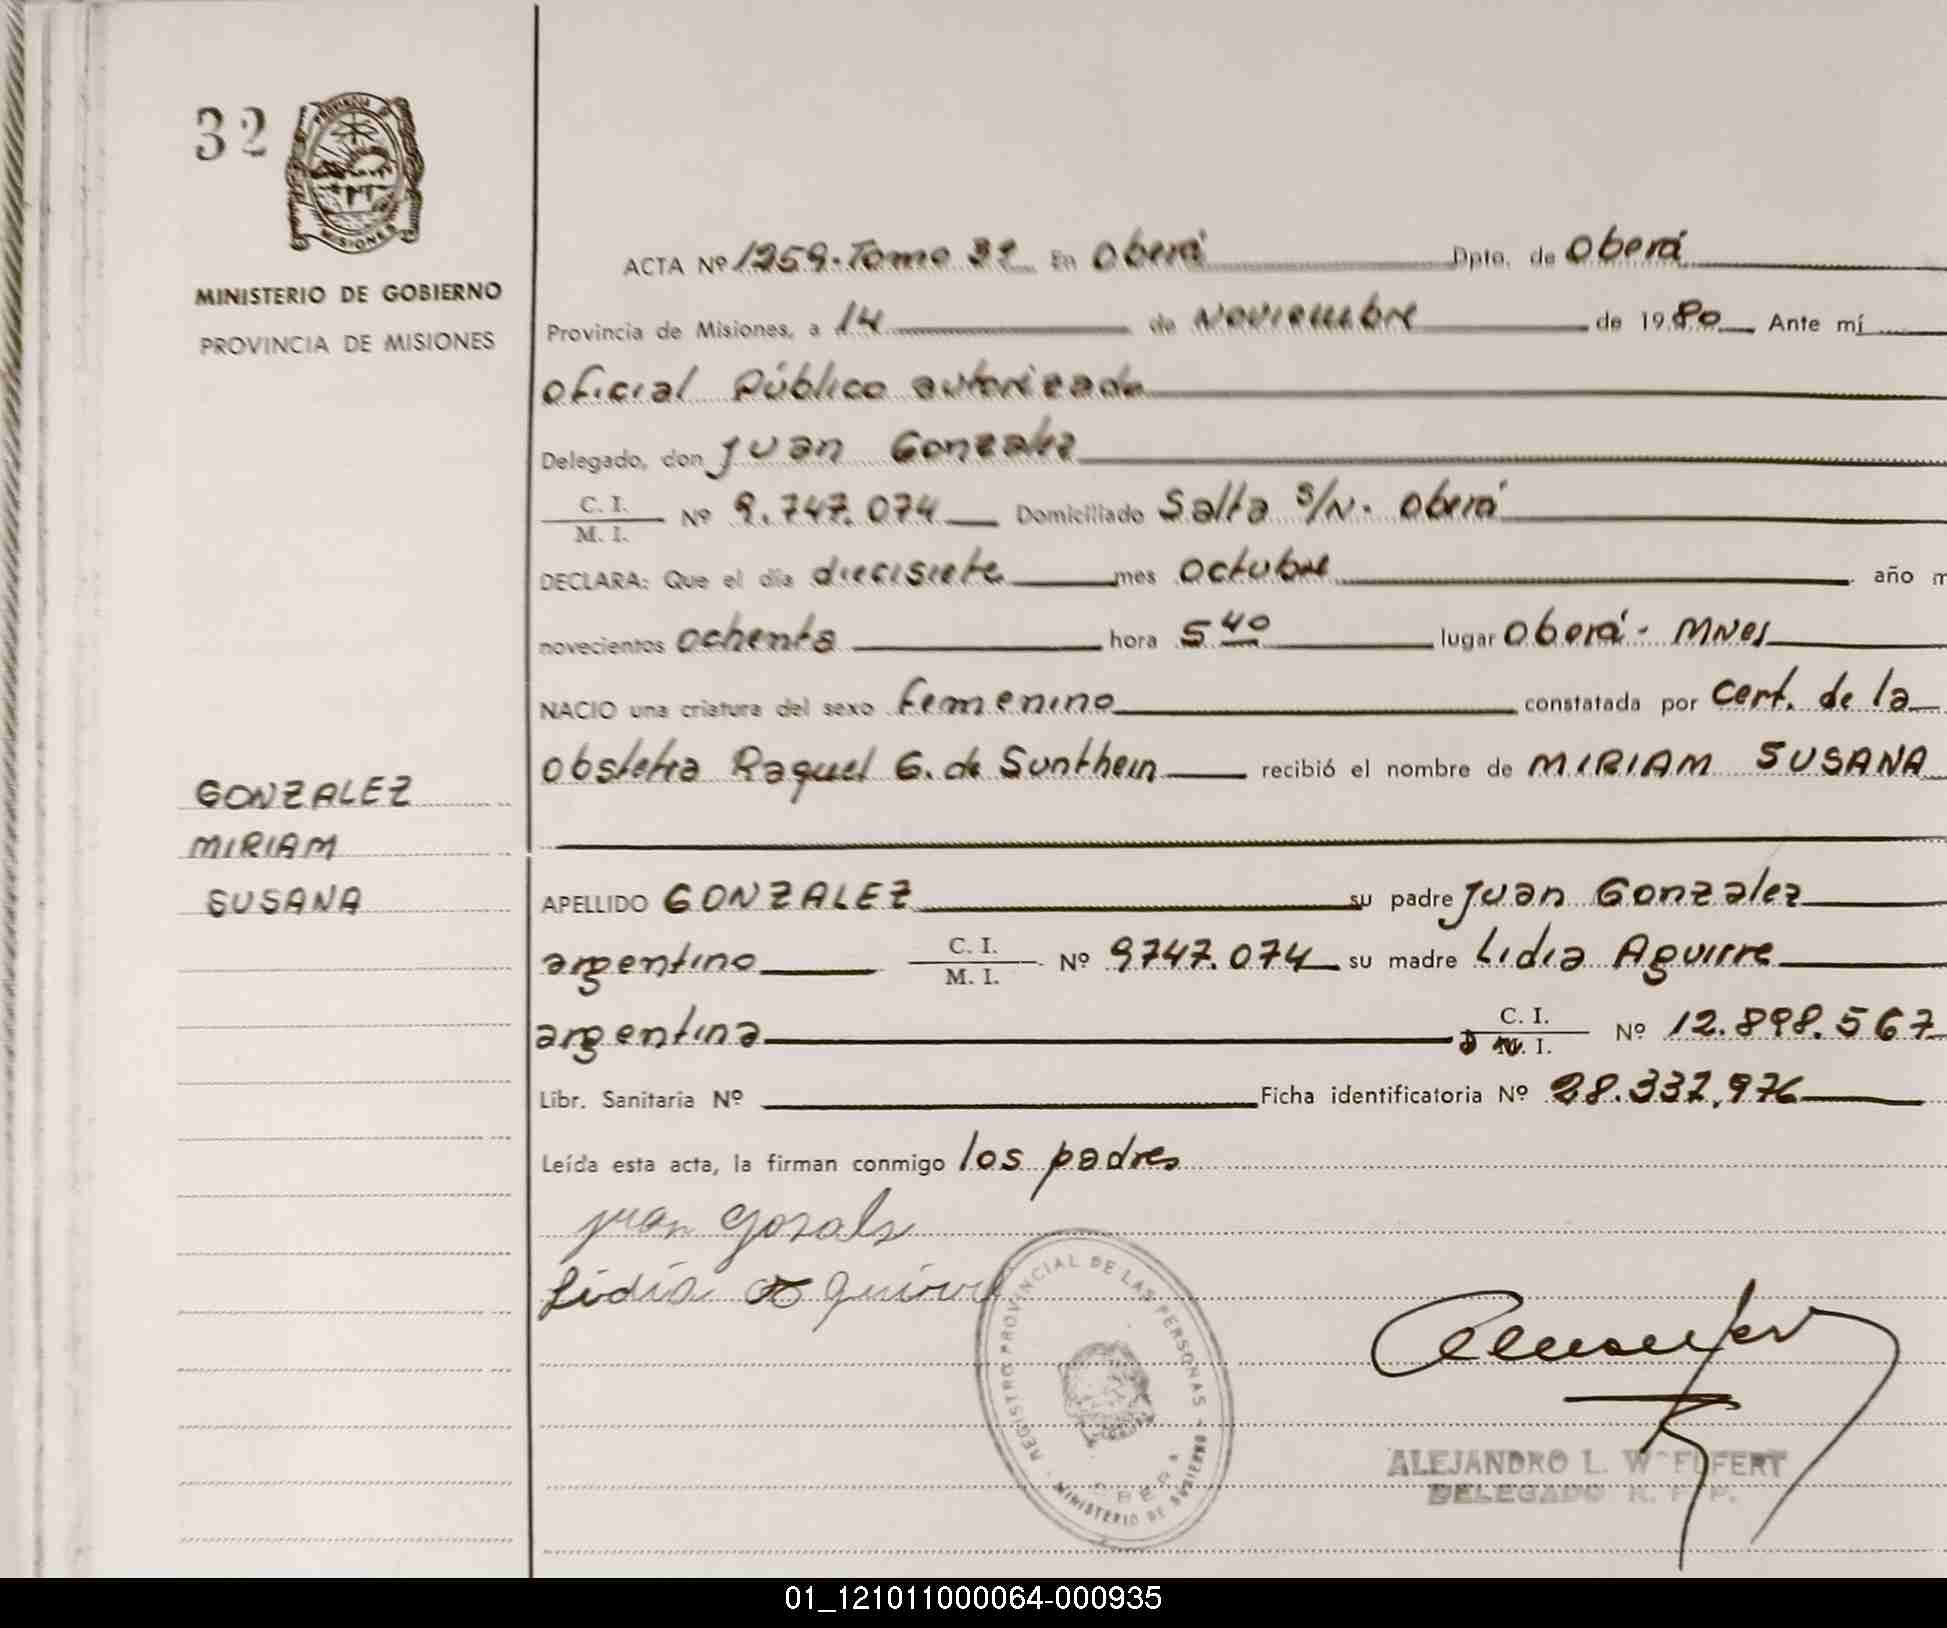 32
PROVINCIA DE
MISIONES
MINISTERIO DE GOBIERNO
PROVINCIA DE MISIONES
GONZALEZ
MIRIAM
SUSANA
ACTA Nº 1259-Tomo 32 En Oberá Dpto. de Oberá
Provincia de Misiones, a 14 de Noviembre de 1980 Ante mí
oficial Público autorizado
Delegado, don Juan Gonzalez
C. I. / M. I. Nº 9.747.074 Domiciliado Salta S/N. Oberá
DECLARA: Que el día diecisiete mes octubre año m
novecientos ochenta hora 5 40 lugar Oberá - MNes
NACIO una criatura del sexo femenino constatada por Cert. de la
obstetra Raquel G. de Sunthein recibió el nombre de MIRIAM SUSANA
APELLIDO GONZALEZ su padre Juan Gonzalez
argentino C. I. / M. I. Nº 9747.074 su madre Lidia Aguirre
argentina C. I. / D M. I. Nº 12.898.567
Libr. Sanitaria Nº Ficha identificatoria Nº 28.337.976
Leída esta acta, la firman conmigo los padres
Juan Gosals
Lidia Aguirre
REGISTRO PROVINCIAL DE LAS PERSONAS
MINISTERIO DE GOBIERNO
OBERA
ALEJANDRO L.
DELEGADO R. P. P.
01_121011000064-000935